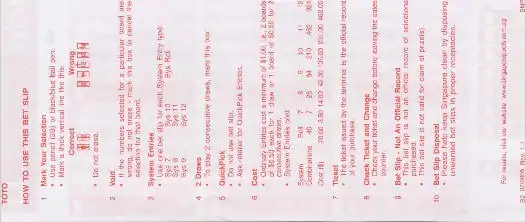 TOTO
HOW TO USE THIS BET SLIP
1 Mark Your Selection
• Use pencil (2B) or black/blue ball pen.
• Mark a thick vertical line like this:
Correct Wrong
• Do not erase.
2 Void
• If the numbers selected for a particular board are
wrong, do not erase - mark this box to cancel the
selection for that board.
3 System Entries
• Use one bet slip for each System Entry type:
Sys 7 Sys 10 Sys Roll
Sys 8 Sys 11
Sys 9 Sys 12
4 2 Draws
To play 2 consecutive draws, mark this box
5 QuickPick
• Do not use bet slip.
• Ask retailer for QuickPick Entries.
6 Cost
• Ordinary Entries cost a minimum of $1.00, i.e., 2 boards
of $0.50 each for 1 draw or 1 board of $0.50 for 2
consecutive draws.
• System Entries cost:
System Roll 7 8 9 10 11 12
Combinations 40 7 28 84 210 462 924
Cost ($) 20.00 3.50 14.00 42.00 105.00 231.00 462.00
7 Ticket
• The ticket issued by the terminal is the official record
of your purchase.
8 Check Ticket and Change
• Check your ticket and change before leaving the sales
counter.
9 Bet Slip - Not An Official Record
• This bet slip is not an official record of selections
purchased.
• This bet slip is not valid for claim of prize(s).
10 Bet Slip Disposal
• Please help keep Singapore clean by disposing
unwanted bet slips in proper receptacles.
For results, visit our website: www.singaporepools.com.sg